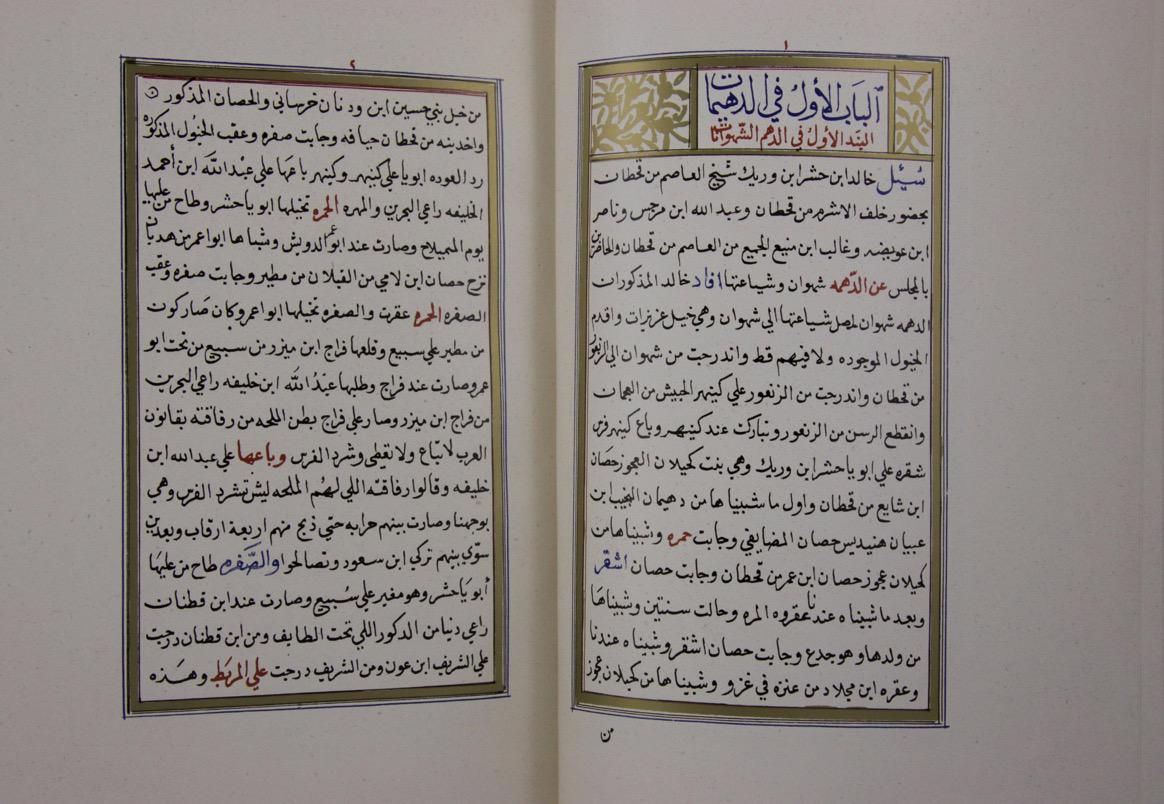 ١
الباب الأول في الدهيمات
البند الأول في الدهم الشهوانيات
سُئل خالد ابن حشر ابن وريك شيخ العاصم من قحطان
بحضور خلف الاشرم من قحطان وعبد الله ابن مرجس وناصر
ابن عويضه وغالب ابن منيع الجميع من العاصم من قحطان والحاضرين
بالمجلس عن الدهمه شهوان وشياعتها افاد خالد المذكورات
الدهمه شهوان لصل شياعتها الي شهوان وهي خيل عزيزات واقدم
الخيول الموجوده ولا فيهم قط واندرجت من شهوان الي الزنعور
من قحطان واندرجت من الزنعور علي كنيهر الجبيش من العجمان
وانقطع الرسن من الزنعور وتباركت عند كنيهر وباع كنيهر فرس
شقره علي ابو يا حشر ابن وريك وهي بنت كحيلان العجوز حصان
ابن شايع من قحطان واول ما شبيناها من دهيمان النجيب ابن
عبيان هنيديس حصان المضايفي وجابت حمره وشبيناها من
كحيلان عجوز حصان ابن عمر من قحطان وجابت حصان اشقر
وبعد ما شبيناه عندنا عقروه المره وحالت سنتين وشبيناها
من ولدها وهو جدع وجابت حصان اشقر وشبيناه عندنا
وعقره ابن مجلاد من عنزه في غزو وشبيناها من كحيلان عجوز
من
٢
من خيل بني حسين ابن ودنان خرساني والحصان المذكور
واخدينه من قحطان حيافه وجابت صفره وعقب الخيول المذكوره
رد العوده ابويا علي كنيهر وكنيهر باعها علي عبد الله ابن أحمد
الخليفه راعي البحرين والمهره الحمره تخيلها ابويا حشر وطاح من عليها
يوم المبيلاح وصارت عند ابو عمر الدويش وشباها ابو عمر من هدبان
نزح حصان ابن لامي من القبلان من مطير وجابت صفره وعقب
الصفره الحمره عقرت والصفره تخيلها ابو عمر وكان صار كون
من مطير علي سبيع وقلعها فراج ابن ميزر من سبيع من تحت ابو
عمر وصارت عند فراج وطلبها عبد الله ابن خليفه راعي البحرين
من فراج ابن ميزر وصار علي فراج بطن الملحه من رفاقته بقانون
العرب لا تباع ولا تعطى وشرد الفرس وباعها علي عبد الله ابن
خليفه وقالوا رفاقته اللي لهم الملحه ليش تشرد الفرس وهي
بوجهنا وصارت بينهم حرابه حتي ذبح منهم اربعة ارقاب وبعدين
سوّي بينهم تركي ابن سعود وتصالحوا والصفره طاح من عليها
أبو يا حشر وهو مغير علي سبيع وصارت عند ابن قطنان
راعي دنيا من الدكور اللي تحت الطايف ومن ابن قطنان درجت
علي الشريف ابن عون ومن الشريف درجت علي المربط وهذه